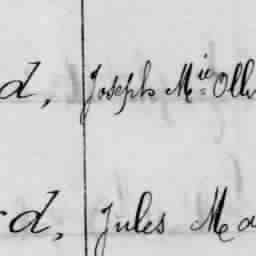 d, Joseph Mie Oll
rd, Jules Ma